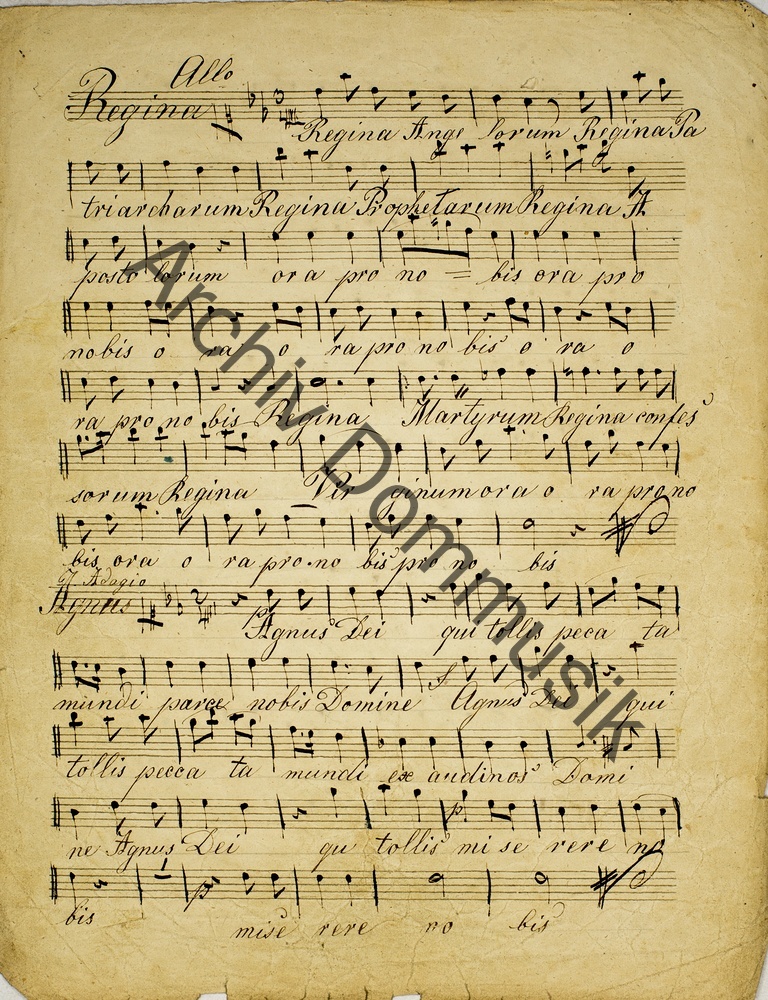 Allo
Regina
Regina Ange lorum Regina Pa
triarcharum Regina Prophetarum Regina A
posto lorum ora pro no = bis ora pro
nobis o ra o ra pro no bis o ra o
ra pro no bis Regina Martyrum Regina confes
sorum Regina Vir ginum ora o ra pro no
bis ora o ra pro no bis pro no bis
Adagio
Agnus
Agnus Dei qui tollis peca ta
mundi parce nobis Domine Agnus Dei qui
tollis pecca ta mundi ex audi nos Domi
ne Agnus Dei qu tollis mi se rere no
bis mise rere no bis
Archiv Dommusik